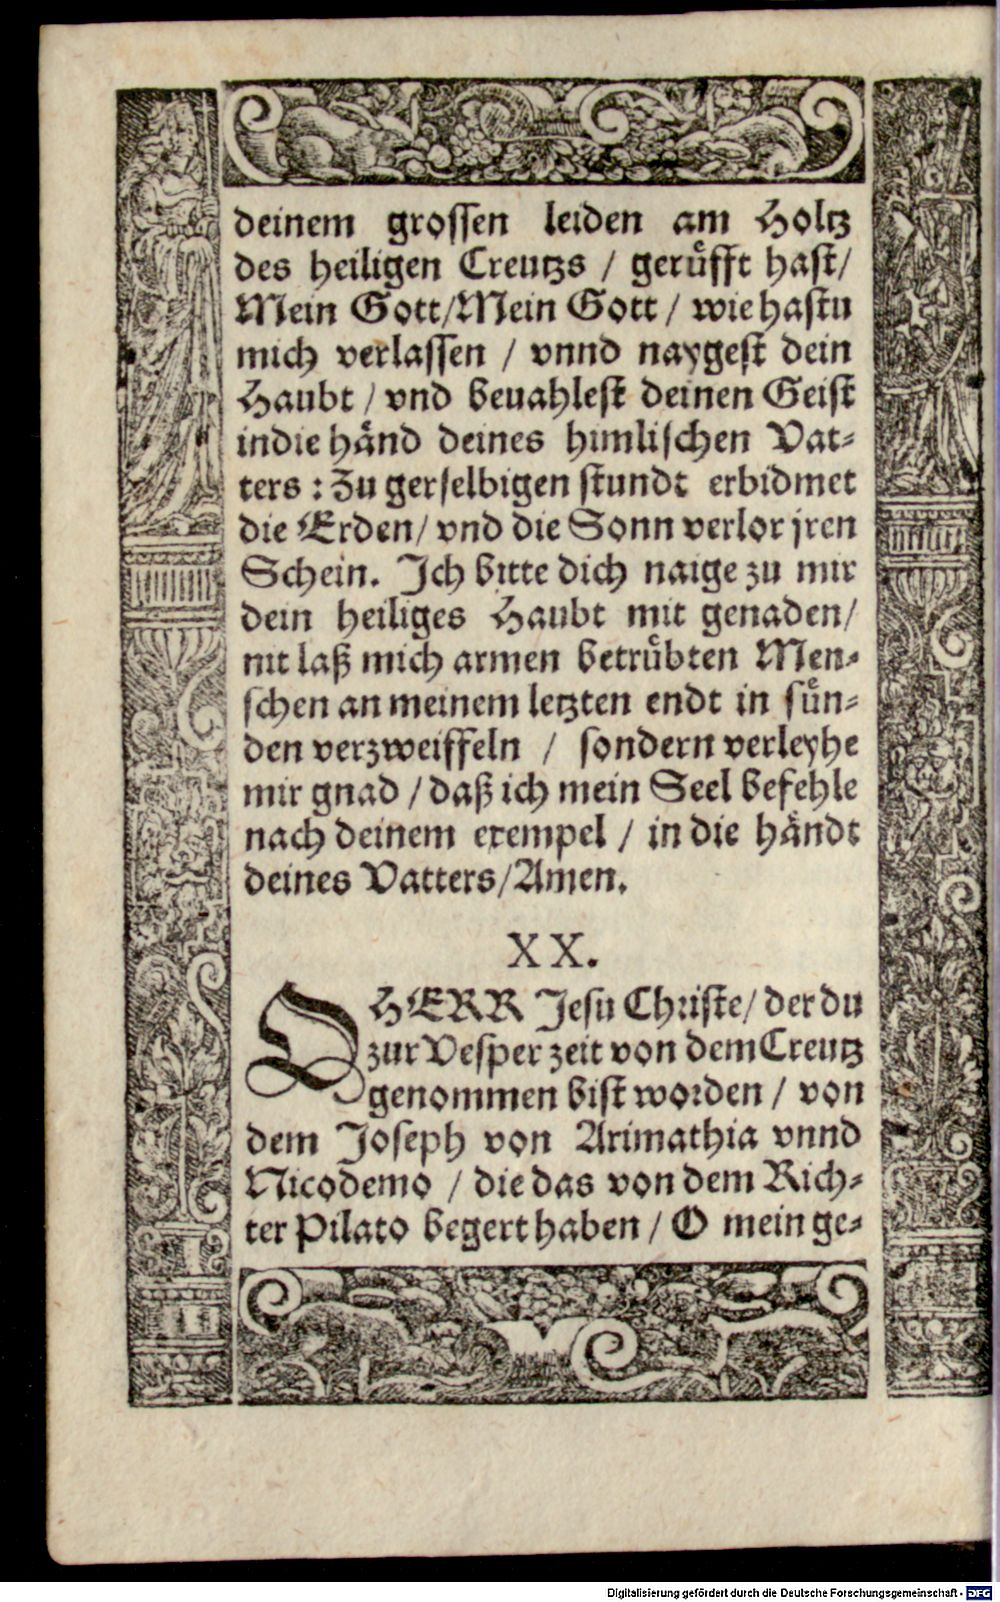 deinem grossen leiden am Holtz
des heiligen Creutzs / gerüfft hast/
Mein Gott/Mein Gott / wie hastu
mich verlassen / vnnd naygest dein
Haubt / vnd beuahlest deinen Geist
indie händ deines himlischen Vat-
ters : Zu gerselbigen stundt erbidmet
die Erden/ vnd die Sonn verlor jren
Schein. Ich bitte dich naige zu mir
dein heiliges Haubt mit genaden/
nit laß mich armen betrübten Men-
schen an meinem letzten endt in sün-
den verzweiffeln / sondern verleyhe
mir gnad / daß ich mein Seel befehle
nach deinem exempel / in die händt
deines Vatters/Amen.
XX.
O HERR Jesu Christe/ der du
zur Vesper zeit von dem Creutz
genommen bist worden / von
dem Joseph von Arimathia vnnd
Nicodemo / die das von dem Rich-
ter Pilato begert haben / O mein ge-
Digitalisierung gefördert durch die Deutsche Forschungsgemeinschaft - DFG